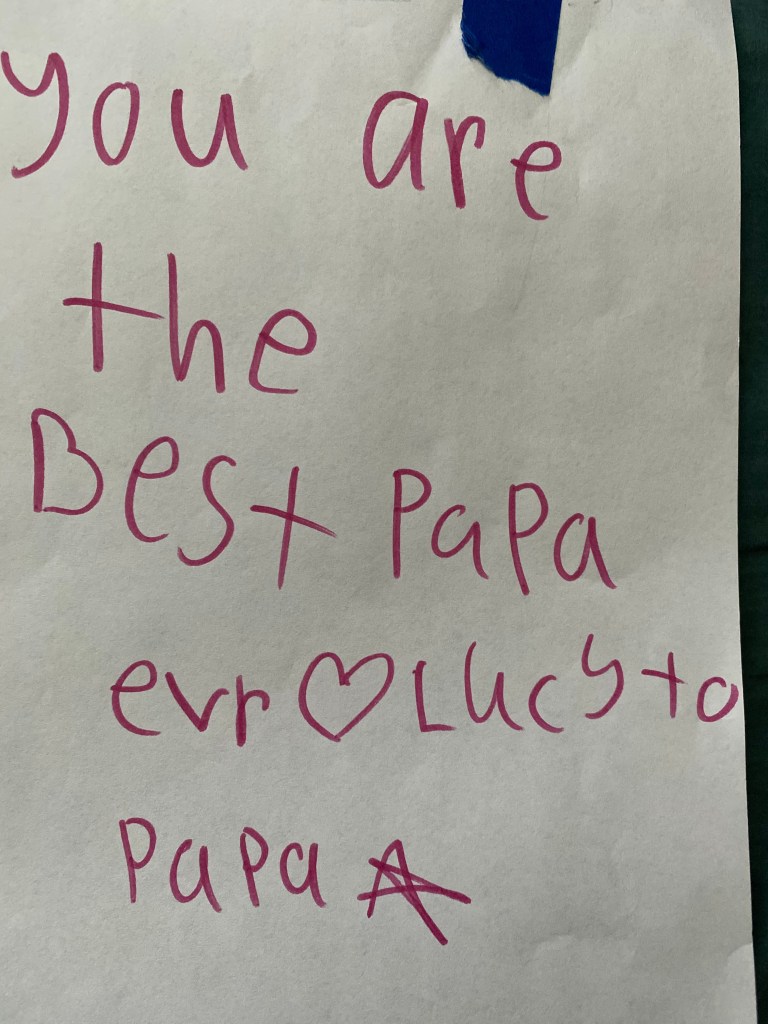 you are
the
Best PaPa
evr ♡ Lucy to
PaPa ☆